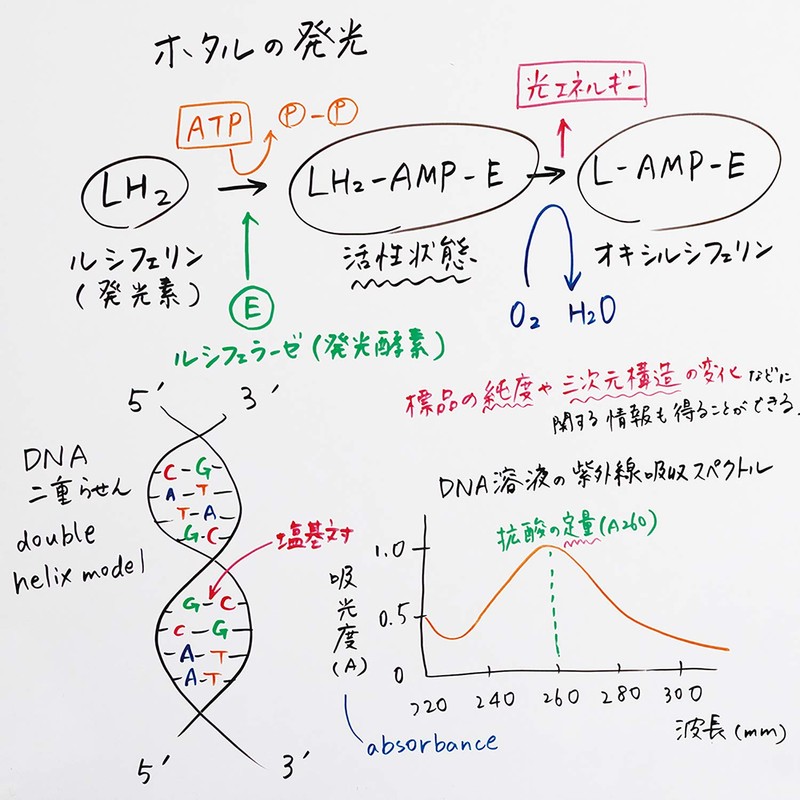 ホタルの発光
光エネルギー
ATP
Ⓟ-Ⓟ
LH₂
LH₂-AMP-E
L-AMP-E
ルシフェリン
(発光素)
活性状態
オキシルシフェリン
E
O₂ H₂O
ルシフェラーゼ(発光酵素)
標品の純度や三次元構造の変化などに
関する情報も得ることができる.
5′ 3′
DNA
二重らせん
double
helix model
C-G
A-T
T-A
G-C
塩基対
G-C
C-G
A-T
A-T
5′ 3′
DNA溶液の紫外線吸収スペクトル
核酸の定量(A260)
1.0
0.5
0
吸光度(A)
220 240 260 280 300
波長(mm)
absorbance